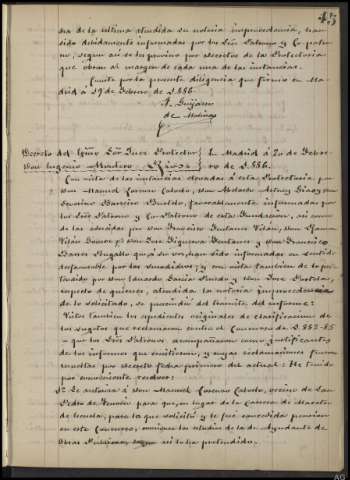 45
cia de la última atendida su notoria improcedencia, han
sido debidamente informadas por los Sres Patrono y Co-patro-
no, segun así se les previno por decretos de la Protectoría
que obran al margen de cada una de las instancias.
Cuanto por la presente diligencia que firmo en Ma-
drid á 19 de Febrero de 1.886.
A. Guijarro
de Molina
Decreto del Ygmo Sor Juez Protector
Don Eugenio Montero Rios
En Madrid á 20 de Febre-
ro de 1.886.
Con vista de las instancias elevadas á esta Protectoría por
Don Manuel Lorenzo Cabodo, Don Medardo
Severino Barreiro favorablemente informadas por
los Sres Patrono y Co-Patrono de esta Fundacion, así como
de las aducidas por Don Francisco Vilas, Don
Vilas y Don José Figueroa y Don Francisco
que á su vez, han sido informadas en sentido
desfavorable por los y con vista tambien de lo in-
por Don Eduardo García y Don José
respecto de quienes, atendida la notoria improcedencia
de lo solicitado, se prescindió del trámite del informe:
Vistos tambien los expedientes originales de clasificacion de
los sugetos que reclamaron contra el Concurso de 1.884-85
que los Sres Patronos acompañaron como justificantes
de los informes que emitieron, y cuyas reclamaciones fueron
resueltas por decreto fecha primero del actual: He tenido
por conveniente resolver:
1º Se autoriza á Don Manuel Lorenzo Cabodo, vecino de San
Pedro de para que, en lugar de la Carrera de Maestro
de Escuela, para la que solicitó y le fué concedida pension
en este Concurso, emprenda los estudios de la de Ayudante de
Obras Públicas, segun así lo ha pretendido.